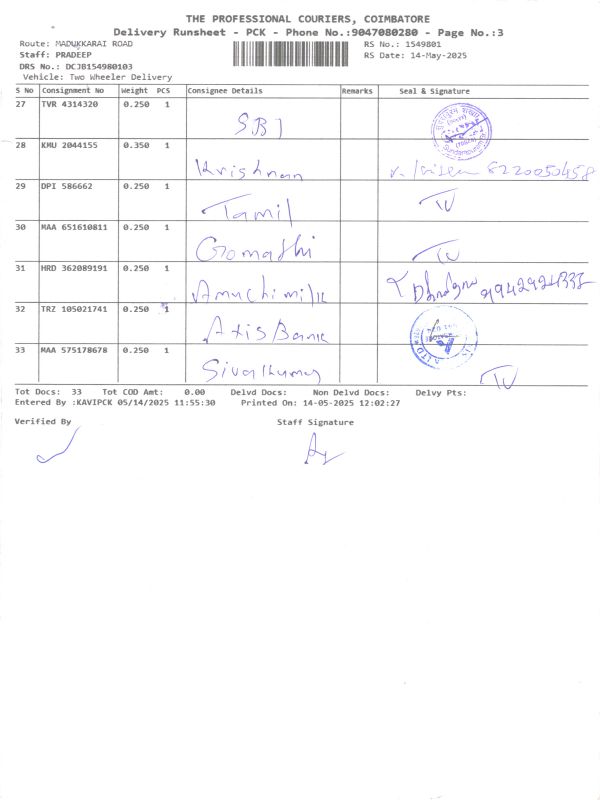 THE PROFESSIONAL COURIERS, COIMBATORE
Delivery Runsheet - PCK - Phone No.:9047080280 - Page No.:3
Route: MADUKKARAI ROAD RS No.: 1549801
Staff: PRADEEP RS Date: 14-May-2025
DRS No.: DCJB154980103
Vehicle: Two Wheeler Delivery
S No Consignment No Weight PCS Consignee Details Remarks Seal & Signature
27 TVR 4314320 0.250 1 SBI
28 KMU 2044155 0.350 1 Krishnan
29 DPI 586662 0.250 1 Tamil
30 MAA 651610811 0.250 1 Gomathi
31 HRD 362089191 0.250 1
32 TRZ 105021741 0.250 1 Axis Bank
33 MAA 575178678 0.250 1 Sivalkumar
Tot Docs: 33 Tot COD Amt: 0.00 Delvd Docs: Non Delvd Docs: Delvy Pts:
Entered By :KAVIPCK 05/14/2025 11:55:30 Printed On: 14-05-2025 12:02:27
Verified By Staff Signature